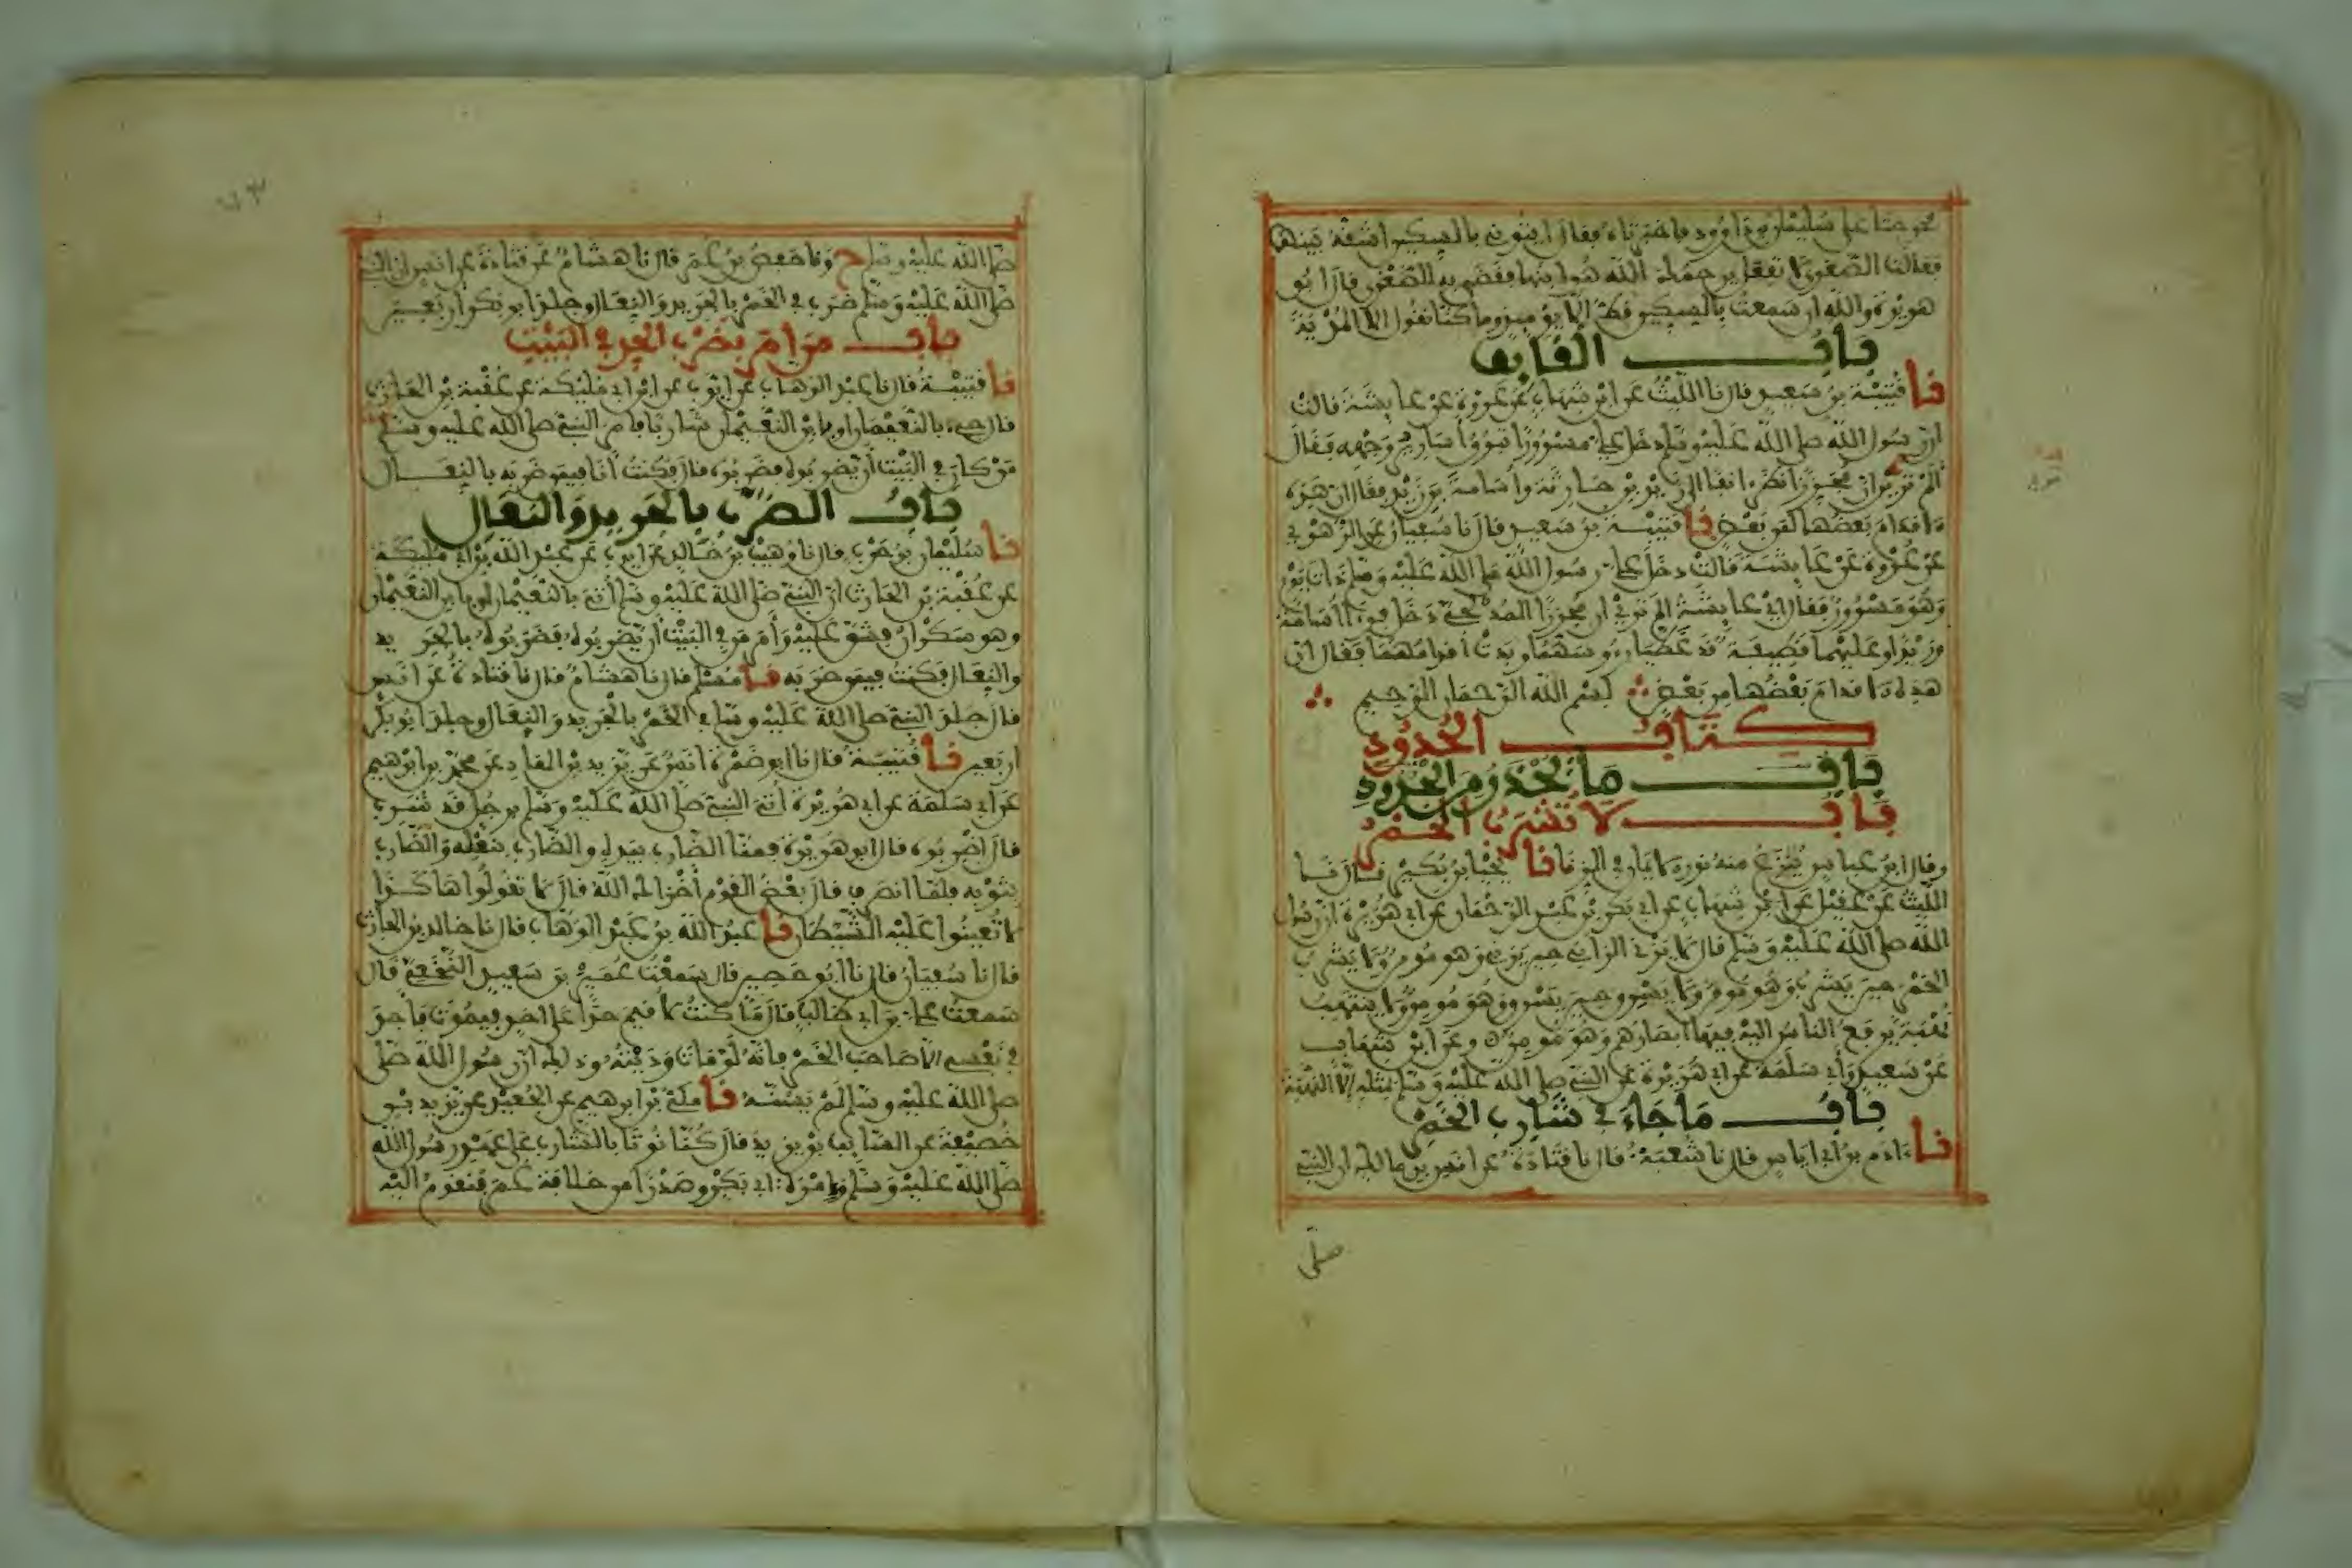 فخرجتا على سليمان بن داوود فاخبرتاه فقال ايتوني بالسكين اشقه بينهما
فقالت الصغرى لا تفعل يرحمك الله هو ابنها فقضى به للصغرى قال ابو
هريرة والله ان سمعت بالسكين قط الا يومئذ وما كنا نقول الا المدية
باب القايف
نا قتيبة بن سعيد قال نا الليث عن ابن شهاب عن عروة عن عايشة قالت
ان رسول الله صلى الله عليه وسلم دخل علي مسرورا تبرق أسارير وجهه فقال
ألم تري ان مجززا نظر انفا الى زيد بن حارثة وأسامة بن زيد فقال ان هذه
الاقدام بعضها لمن بعض نا قتيبة بن سعيد قال نا سفيان عن الزهري
عن عروة عن عايشة قالت دخل علي رسول الله صلى الله عليه وسلم ذات يوم
وهو مسرور فقال اي عايشة الم تري ان مجززا المدلجي دخل فرءا أسامة
وزيدا وعليهما قطيفة قد غطيا رءوسهما وبدت أقدامهما فقال ان
هذه الاقدام بعضها من بعض بسم الله الرحمان الرحيم
كتاب الحدود
باب ما يحذر من الحدود
باب لا تشرب الخمر
وقال ابن عباس ينزع منه نور الايمان في الزنا نا يحيا بن بكير قال نا
الليث عن عقيل عن ابن شهاب عن ابي بكر بن عبد الرحمان عن ابي هريرة ان رسول
الله صلى الله عليه وسلم قال لا يزني الزاني حين يزني وهو مومن ولا يشرب
الخمر حين يشرب وهو مومن ولا يسرق حين يسرق وهو مومن ولا ينتهب
نهبة يرفع الناس اليه فيها ابصارهم وهو مومن وعن ابن شهاب
عن سعيد وأبي سلمة عن ابي هريرة عن النبي صلى الله عليه وسلم بمثله الا النهبة
باب ما جاء في شارب الخمر
نا ءادم بن ابي اياس قال نا شعبة قال نا قتادة عن انس بن مالك ان النبي
صلى
صلى الله عليه وسلم ح ونا حفص بن عمر قال نا هشام عن قتادة عن انس ان النبي
صلى الله عليه وسلم ضرب في الخمر بالجريد والنعال وجلد ابو بكر اربعين
باب من امر بضرب الحد في البيت
نا قتيبة قال نا عبد الوهاب عن ايوب عن ابن ابي مليكة عن عقبة بن الحارث
قال جيء بالنعيمان او بابن النعيمان شاربا فامر النبي صلى الله عليه وسلم
من كان في البيت أن يضربوه فضربوه قال فكنت أنا فيمن ضربه بالنعال
باب الضرب بالجريد والنعال
نا سليمان بن حرب قال نا وهيب بن خالد عن ايوب عن عبد الله بن ابي مليكة
عن عقبة بن الحارث ان النبي صلى الله عليه وسلم أتي بالنعيمان او بابن النعيمان
وهو سكران فشق عليه وأمر من في البيت أن يضربوه فضربوه بالجريد
والنعال فكنت فيمن ضربه نا مسلم قال نا هشام قال نا قتادة عن انس
قال جلد النبي صلى الله عليه وسلم في الخمر بالجريد والنعال وجلد ابو بكر
اربعين نا قتيبة قال نا ابو ضمرة انس عن يزيد بن الهاد عن محمد بن ابراهيم
عن ابي سلمة عن ابي هريرة أتي النبي صلى الله عليه وسلم برجل قد شرب
قال اضربوه قال ابو هريرة فمنا الضارب بيده والضارب بنعله والضارب
بثوبه فلما انصرف قال بعض القوم أخزاك الله قال لا تقولوا هاكذا
لا تعينوا عليه الشيطان نا عبد الله بن عبد الوهاب قال نا خالد بن الحارث
قال نا سفيان قال نا ابو حصين قال سمعت عمير بن سعيد النخعي قال
سمعت علي بن ابي طالب قال ما كنت لاقيم حدا على احد فيموت فأجد
في نفسي الا صاحب الخمر فانه لو مات وديته وذلك ان رسول الله صلى
صلى الله عليه وسلم لم يسنه نا مكي بن ابراهيم عن الجعيد عن يزيد بن
خصيفة عن السائب بن يزيد قال كنا نوتا بالشارب على عهد رسول الله
صلى الله عليه وسلم وامرة ابي بكر وصدرا من خلافة عمر فنقوم اليه